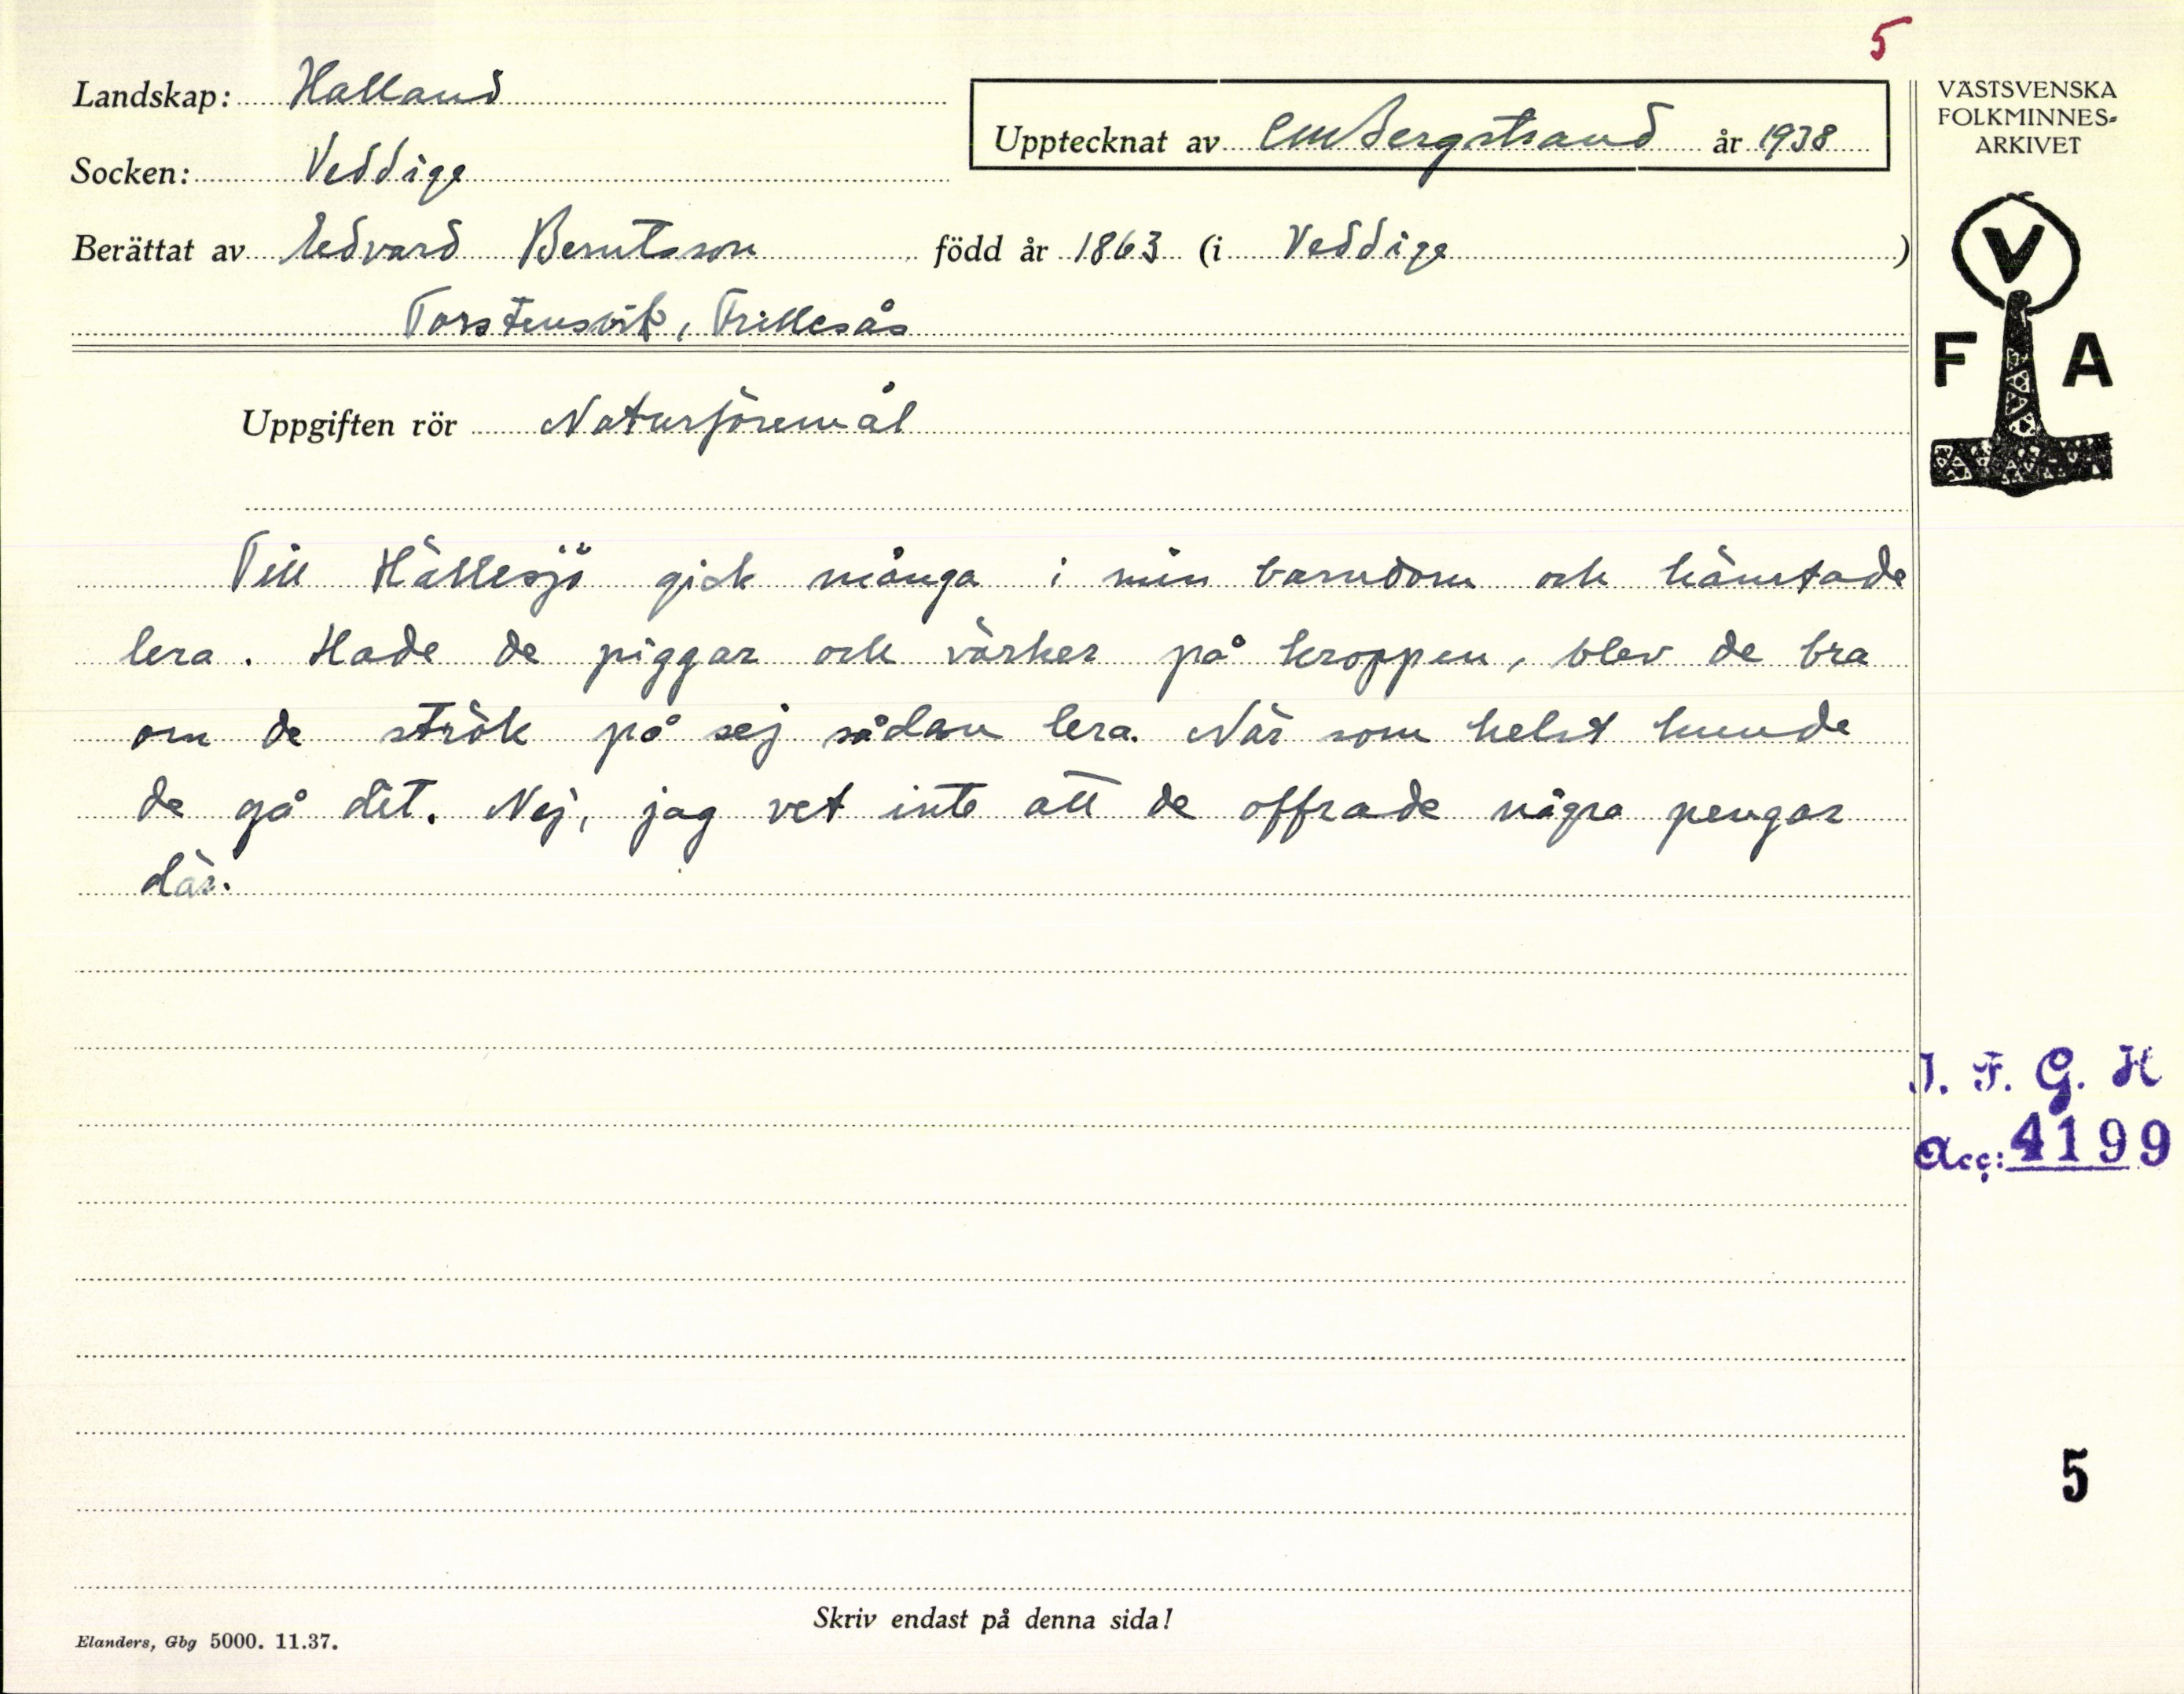 5
Landskap: Halland
Upptecknat av CMBergstrand år 1938
VÄSTSVENSKA
FOLKMINNES-
ARKIVET
Socken: Veddige
Berättat av Edvard Berntsson född år 1863 (i Veddige )
Torstensvik, Frillesås
V
F A
Uppgiften rör Naturföremål
Till Hällesjö gick många i min barndom och hämtade
lera. Hade de piggar och värker på kroppen, blev de bra
om de strök på sej sådan lera. När som helst kunde
de gå dit. Nej, jag vet inte att de offrade några pengar
där.
I. F. G. H
Acc: 4199
5
Skriv endast på denna sida!
Elanders, Gbg 5000. 11.37.